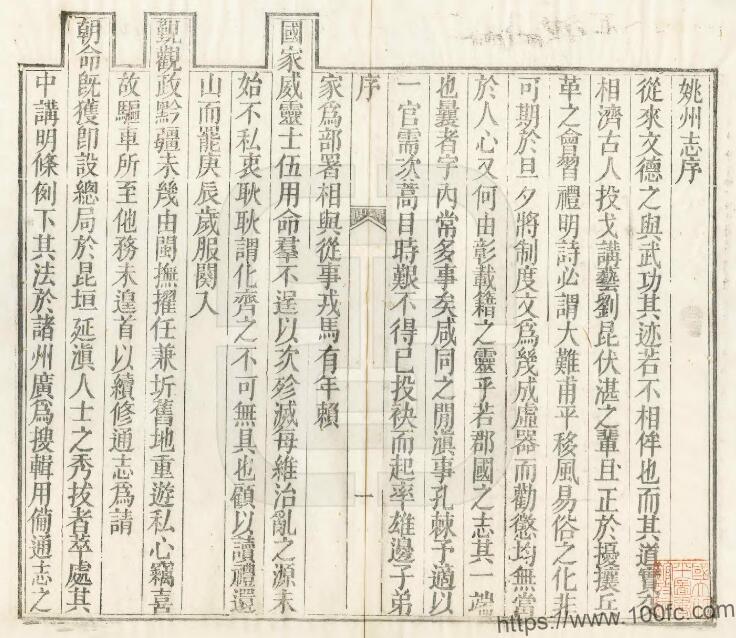 姚州志序
從來文德之與武功其迹若不相侔也而其道實
相濟古人投戈講藝劉昆伏湛之輩且正於擾攘兵
革之會習禮明詩必謂大難甫平移風易俗之化非
可期於旦夕將制度文為幾成虛器而勸懲均無當
於人心又何由彰載籍之靈乎若郡國之志其一端
也曩者宇內常多事矣咸同之閒滇事孔棘予適以
一官需次蒿目時艱不得已投袂而起率雄邊子弟
序
一
家為部署相與從事戎馬有年賴
國家威靈士伍用命羣不逞以次殄滅每維治亂之源未
始不私衷耿耿謂化齊之不可無具也顧以讀禮還
山而罷庚辰歲服闋入
覲觀政黔疆未幾由閩撫擢任兼圻舊地重遊私心竊喜
故驅車所至他務未遑首以續修通志為請
朝命既獲即設總局於昆垣延滇人士之秀拔者萃處其
中講明條例下其法於諸州廣為搜輯用備通志之
https://www.100fc.com